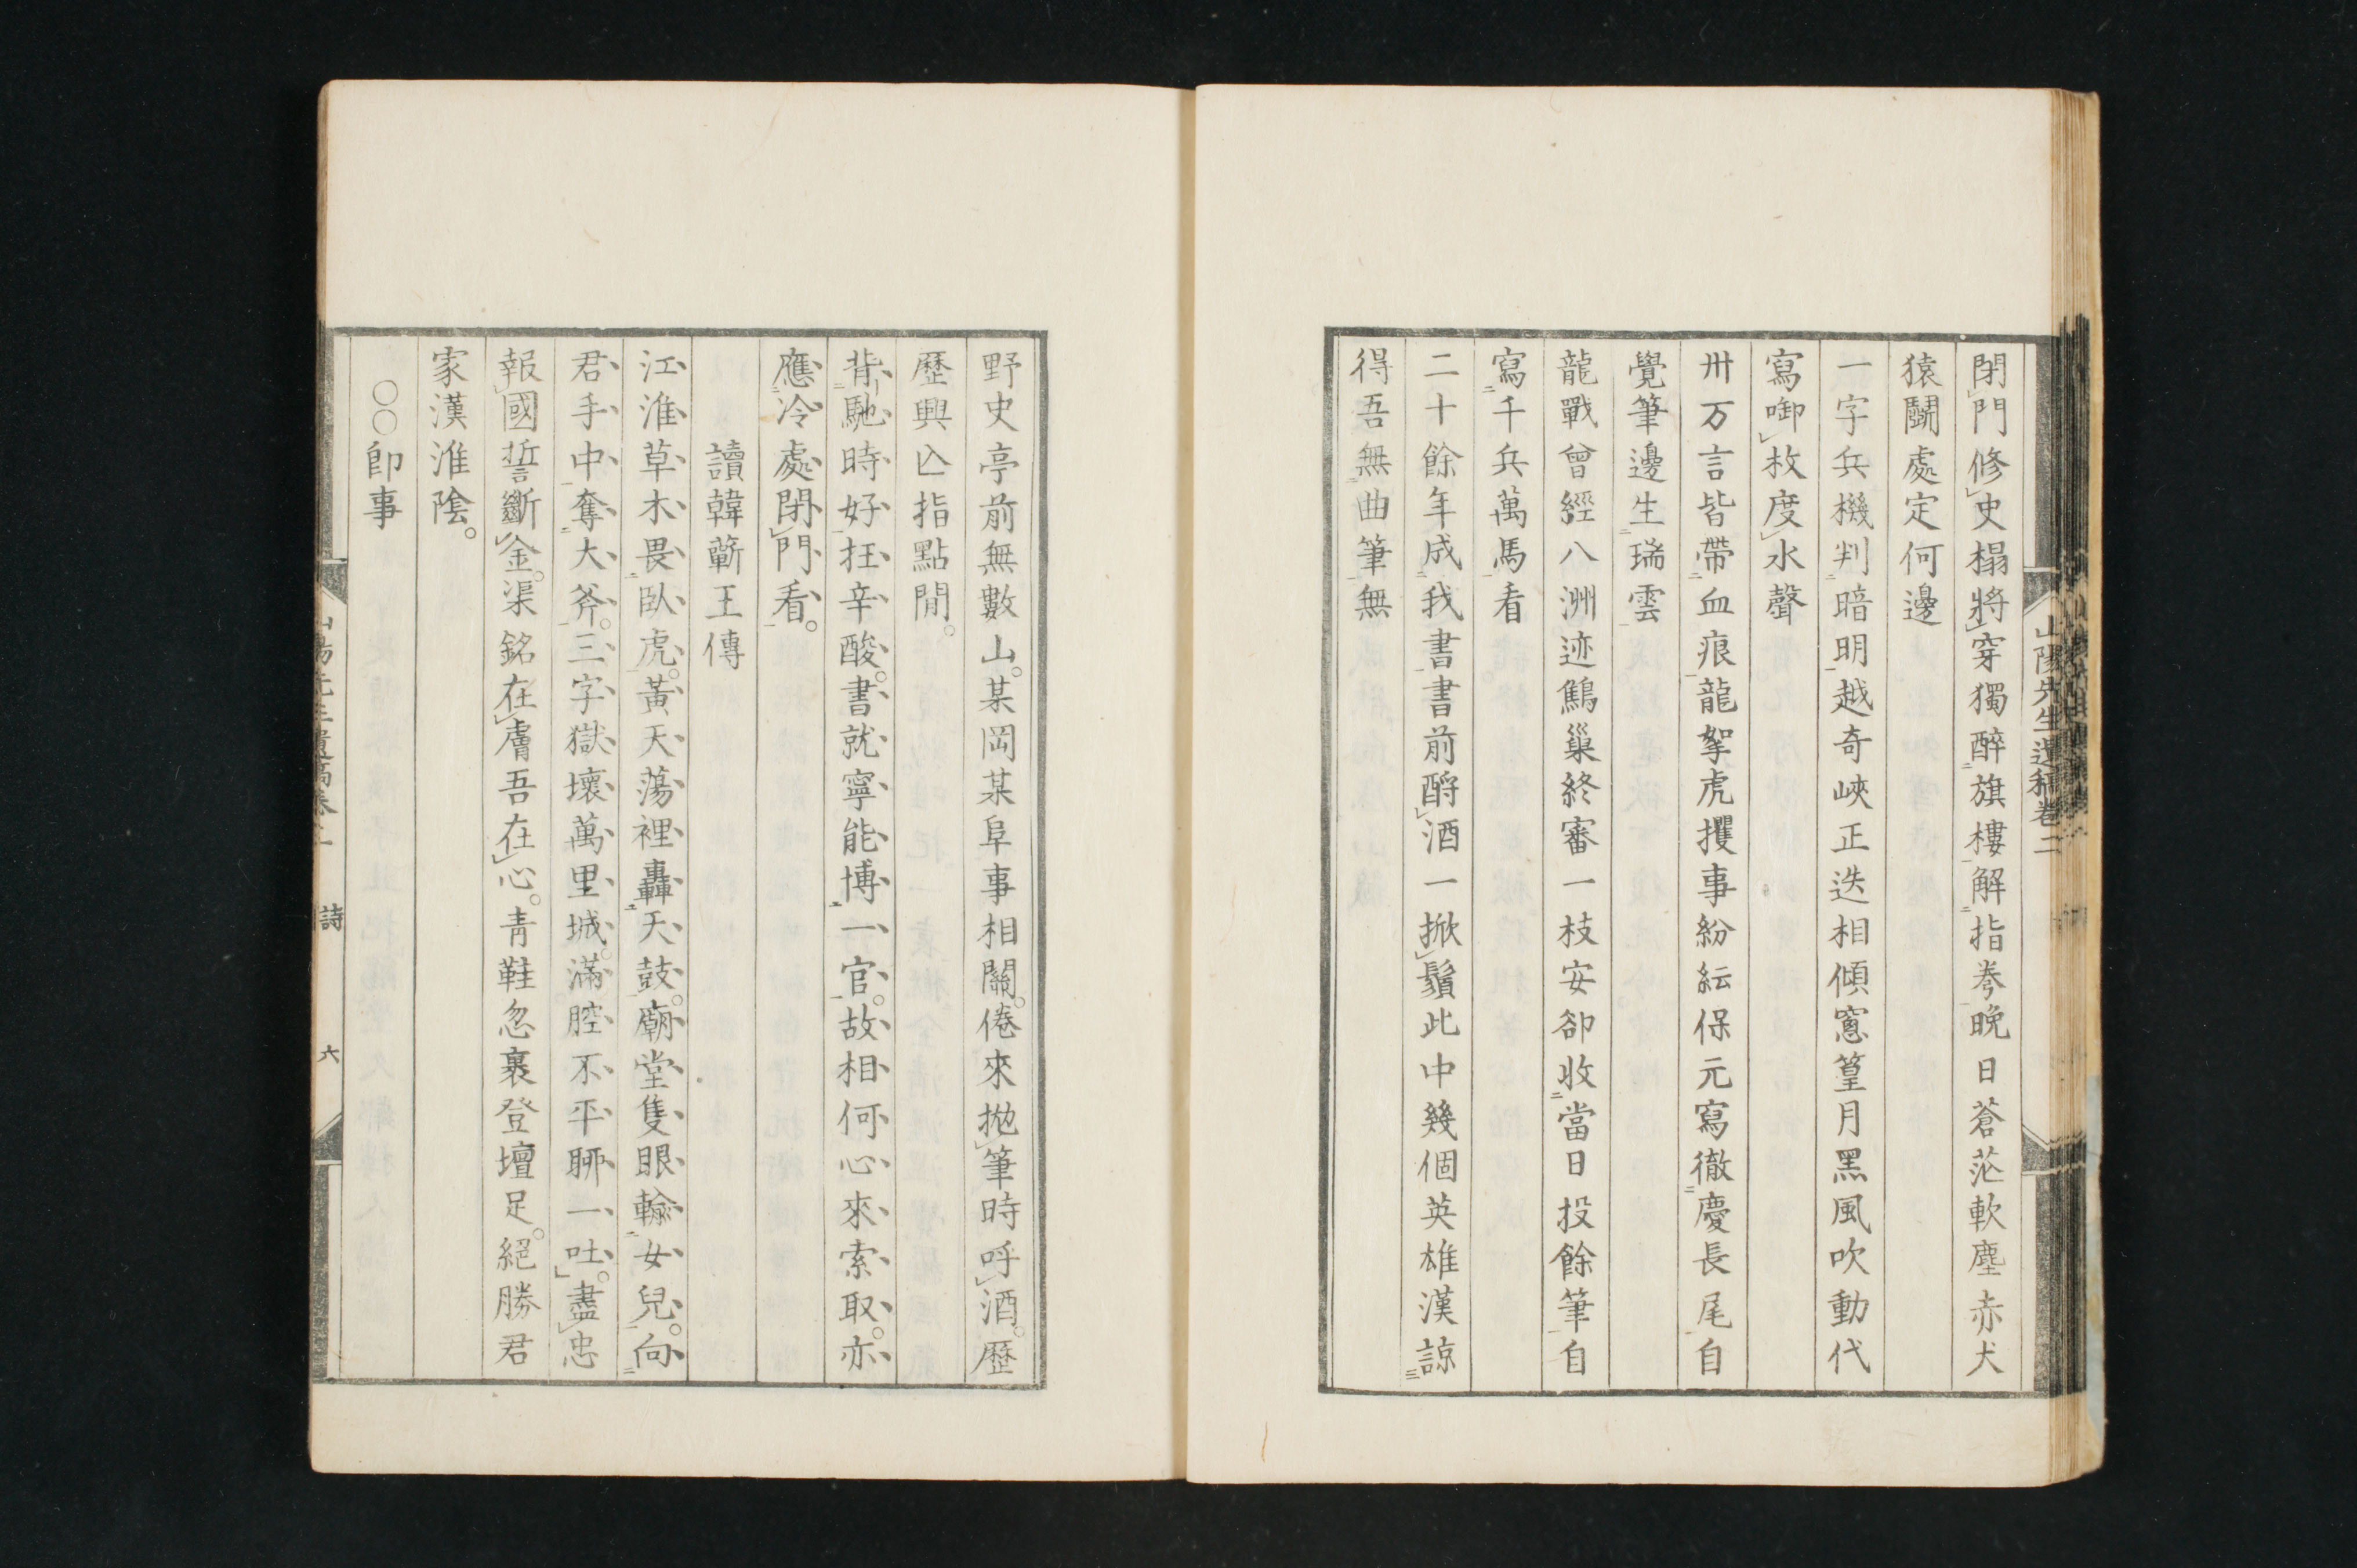 山陽先生遺稿卷二
閉門修史榻將穿獨醉旗樓解指拳晩日蒼茫軟塵赤犬
猿鬪處定何邊
一字兵機判暗明越奇峽正迭相傾窻篁月黑風吹動代
寫啣枚度水聲
卅万言皆帶血痕龍拏虎攫事紛紜保元寫徹慶長尾自
覺筆邊生瑞雲
龍戰曾經八洲迹鷦巢終審一枝安卻收當日投餘筆自
寫千兵萬馬看
二十餘年成我書書前酹酒一掀鬚此中幾個英雄漢諒
得吾無曲筆無
野史亭前無數山。某岡某阜事相關。倦來拋筆時呼酒。歷
歷興亾指點閒。
背馳時好抂辛酸。書就寧能博一官。故相何心來索取。亦
應冷處閉門看。
讀韓蘄王傳
江淮草木畏臥虎。黃天蕩裡轟天鼓。廟堂隻眼輸女兒。向
君手中奪大斧。三字獄壞萬里城。滿腔不平聊一吐。盡忠
報國誓斷金。渠銘在膚吾在心。靑鞋忽裹登壇足。絕勝君
家漢淮陰。
○○卽事
山陽先生遺稿卷二 詩 六